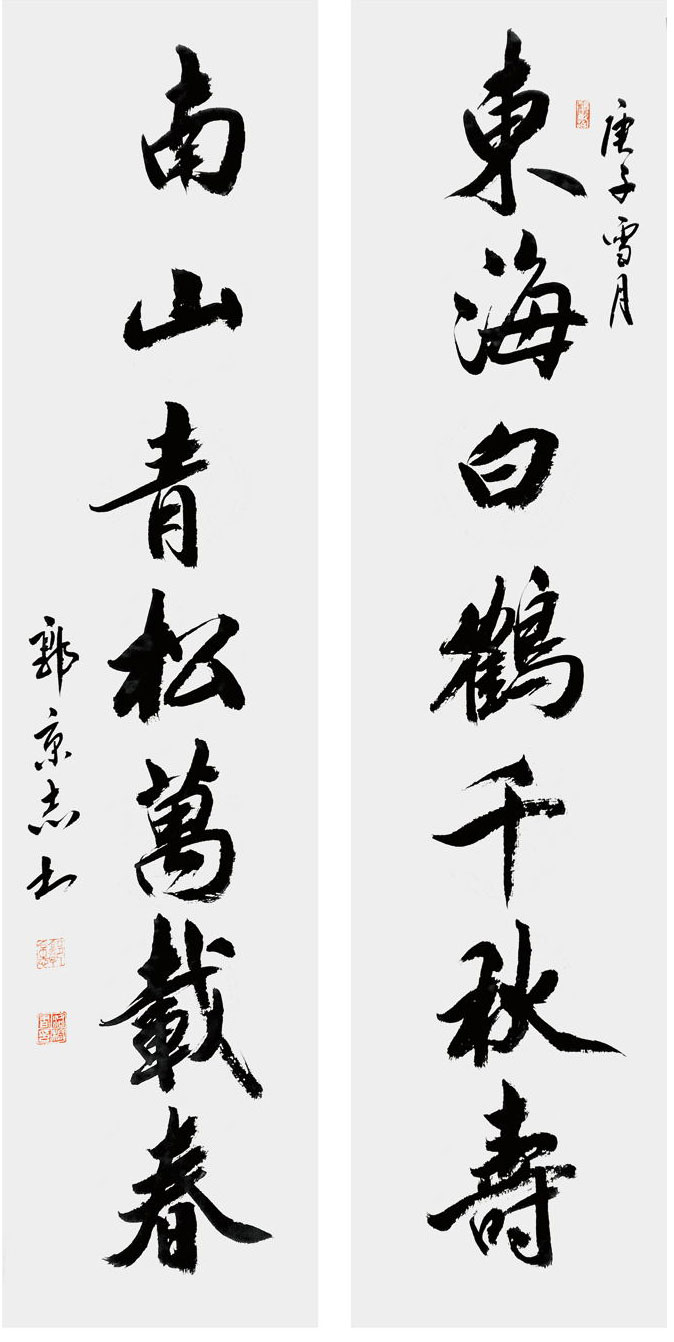 庚子雪月
東海白鶴千秋壽
南山青松萬載春
郭京志书